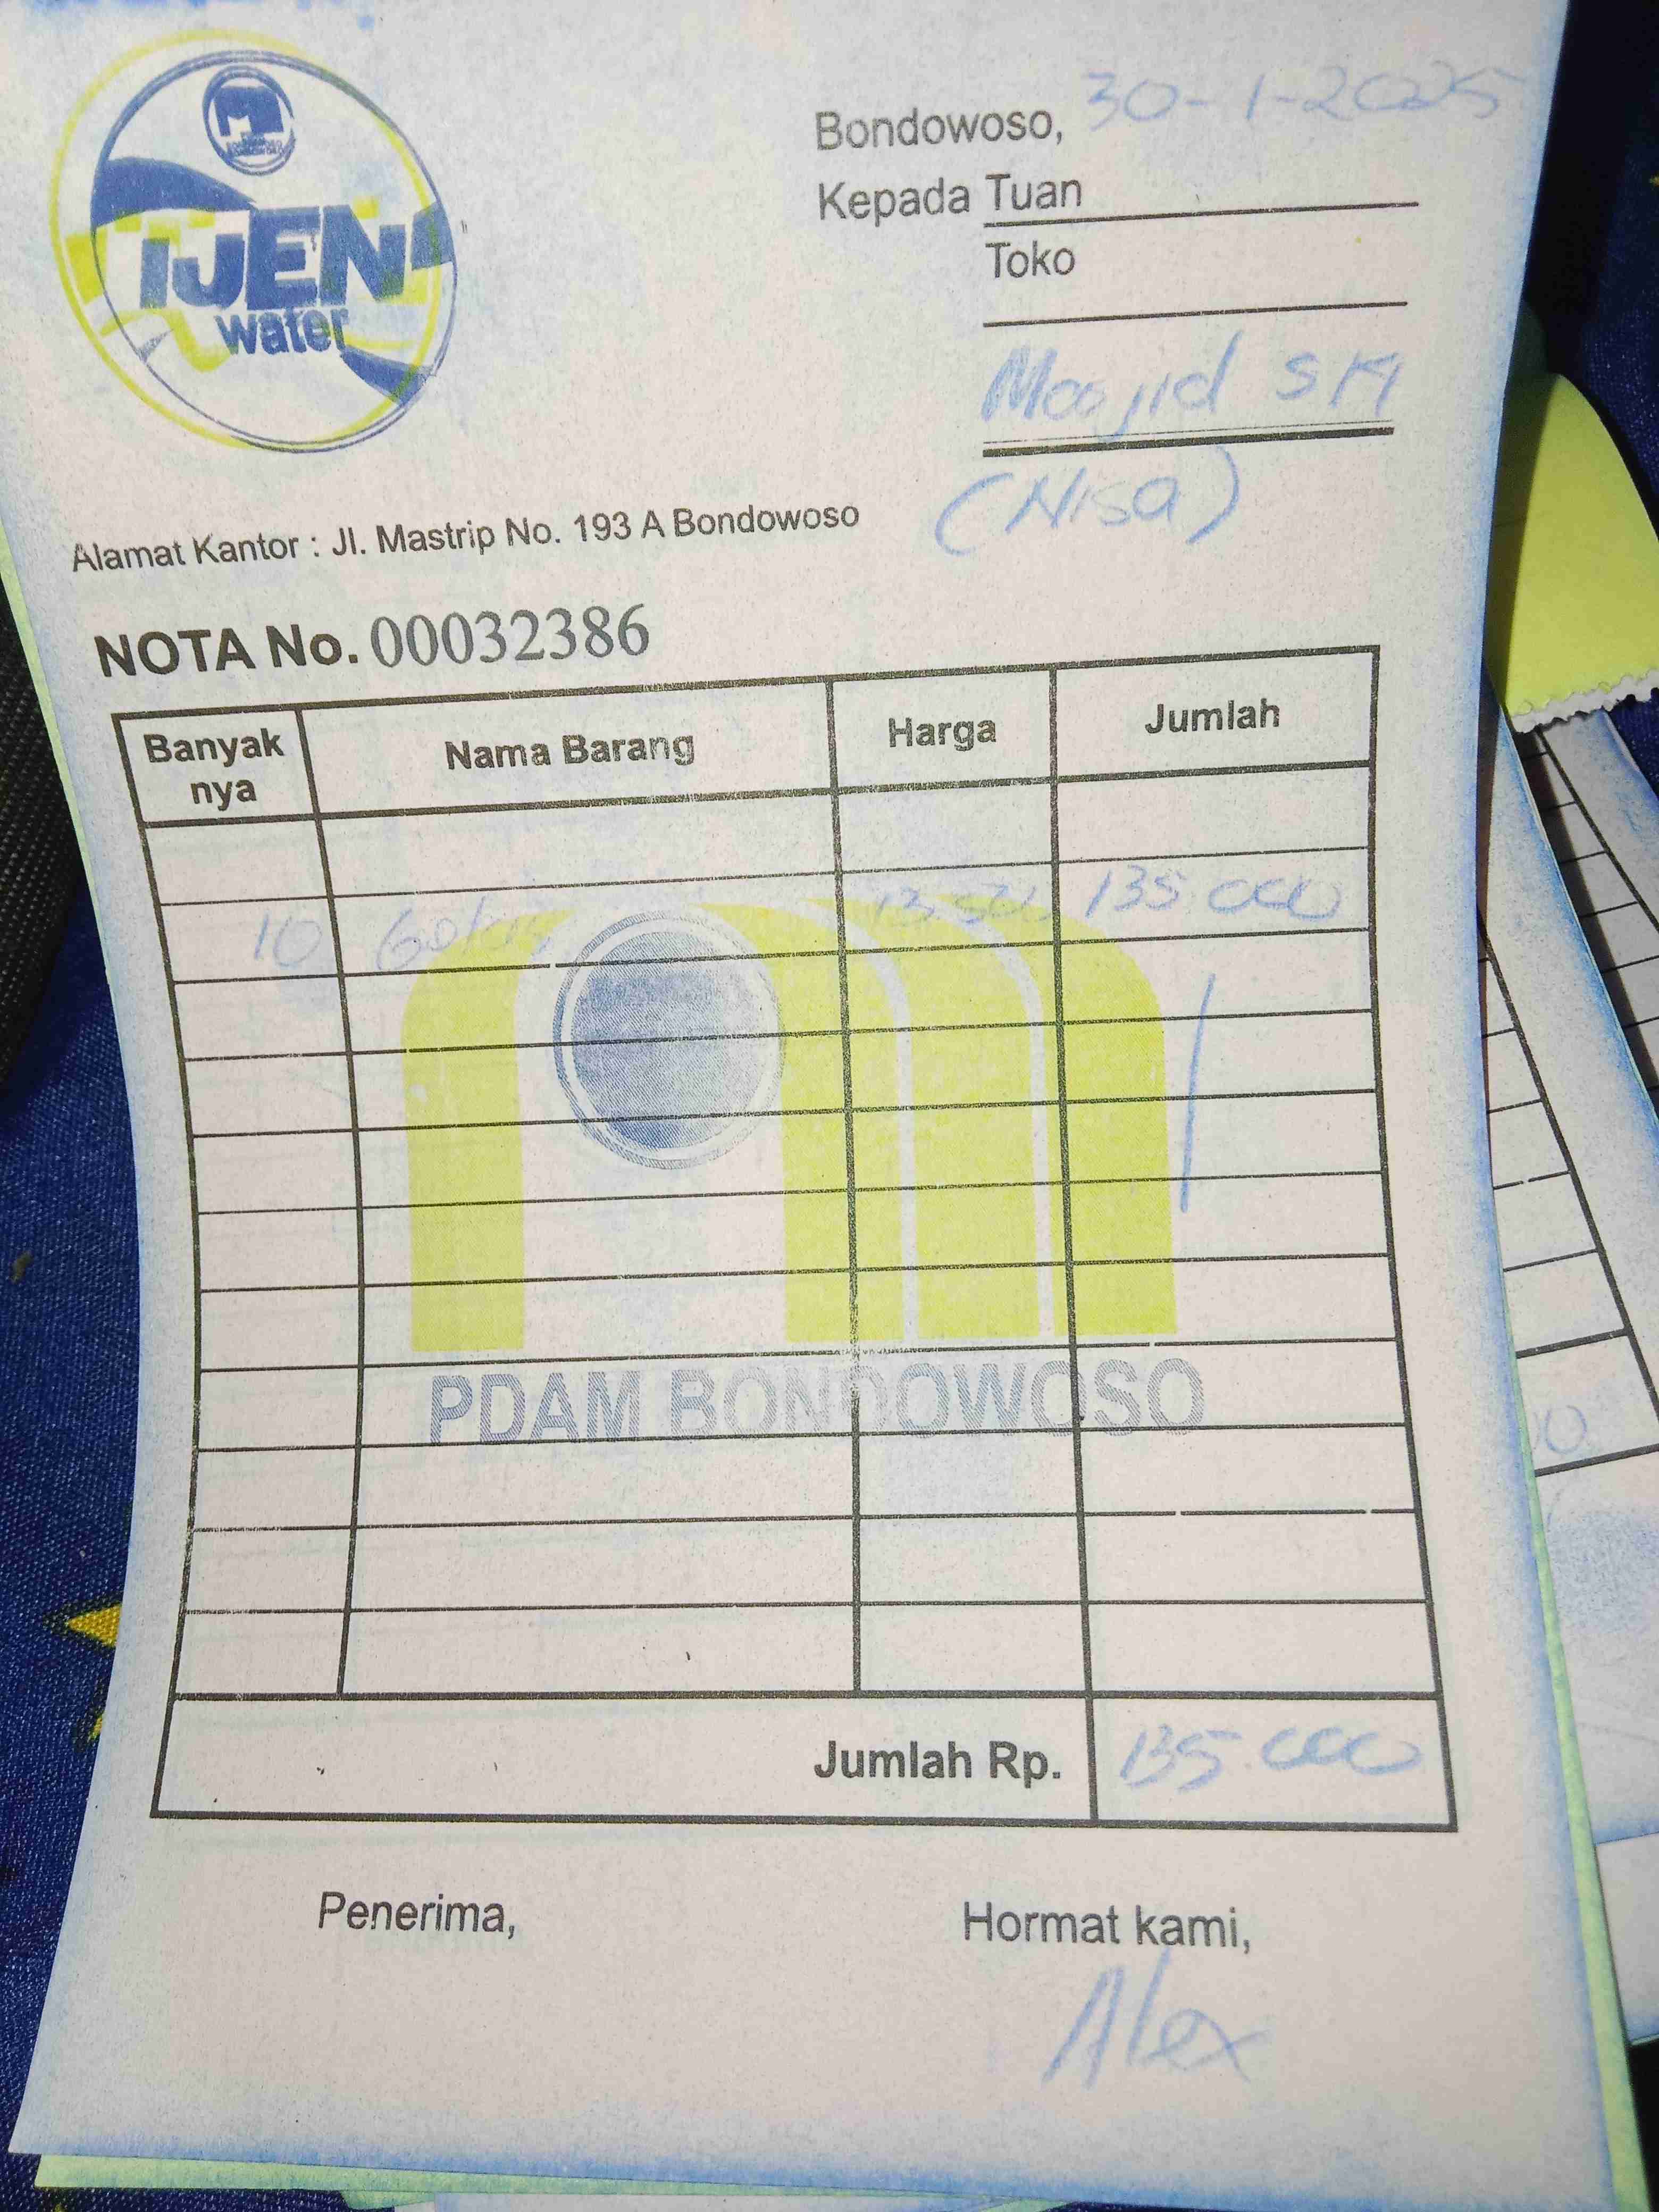 IJEN
water
Bondowoso, 30-1-2025
Kepada Tuan
Toko
Masjid SM
(Nisa)
Alamat Kantor : Jl. Mastrip No. 193 A Bondowoso
NOTA No. 00032386
Banyak nya Nama Barang Harga Jumlah
10 13.500 135.000
PDAM BONDOWOSO
Jumlah Rp. 135.000
Penerima, Hormat kami,
Alex